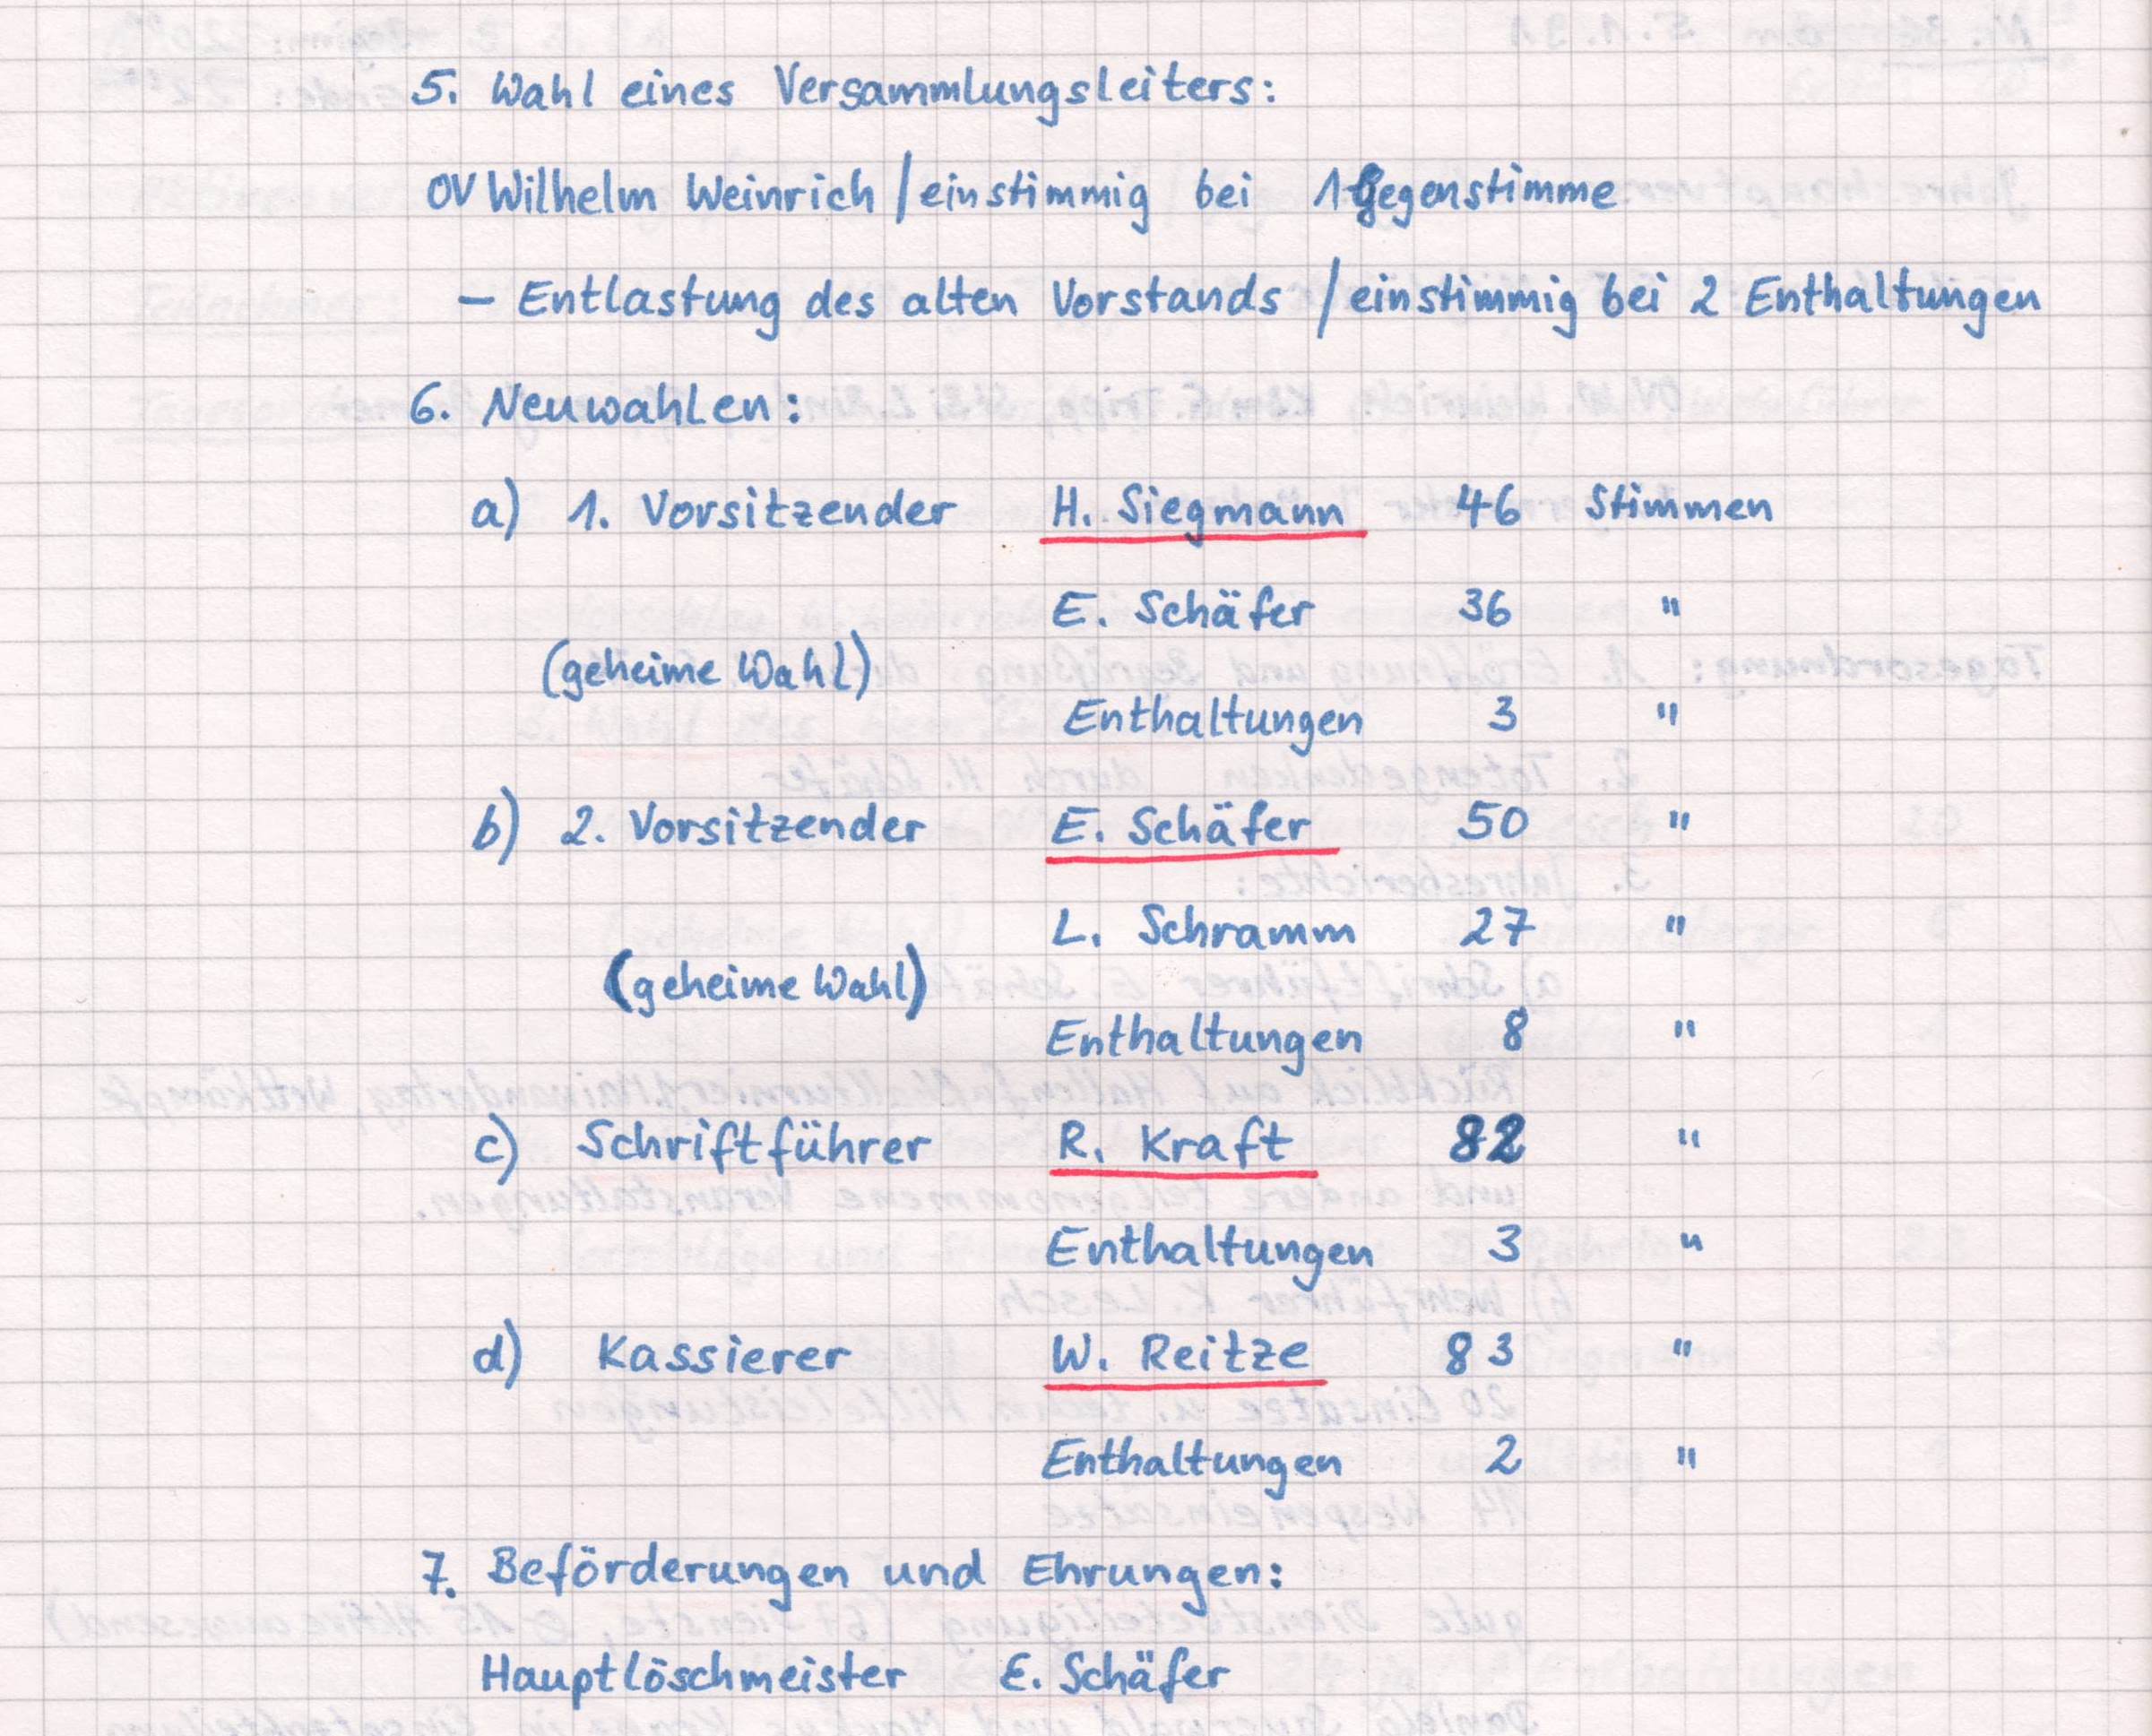 5. Wahl eines Versammlungsleiters:
OV Wilhelm Weinrich / einstimmig bei 1 Gegenstimme
– Entlastung des alten Vorstands / einstimmig bei 2 Enthaltungen
6. Neuwahlen:
a) 1. Vorsitzender H. Siegmann 46 Stimmen
E. Schäfer 36 "
(geheime Wahl)
Enthaltungen 3 "
b) 2. Vorsitzender E. Schäfer 50 "
L. Schramm 27 "
(geheime Wahl)
Enthaltungen 8 "
c) Schriftführer R. Kraft 82 "
Enthaltungen 3 "
d) Kassierer W. Reitze 83 "
Enthaltungen 2 "
7. Beförderungen und Ehrungen:
Hauptlöschmeister E. Schäfer